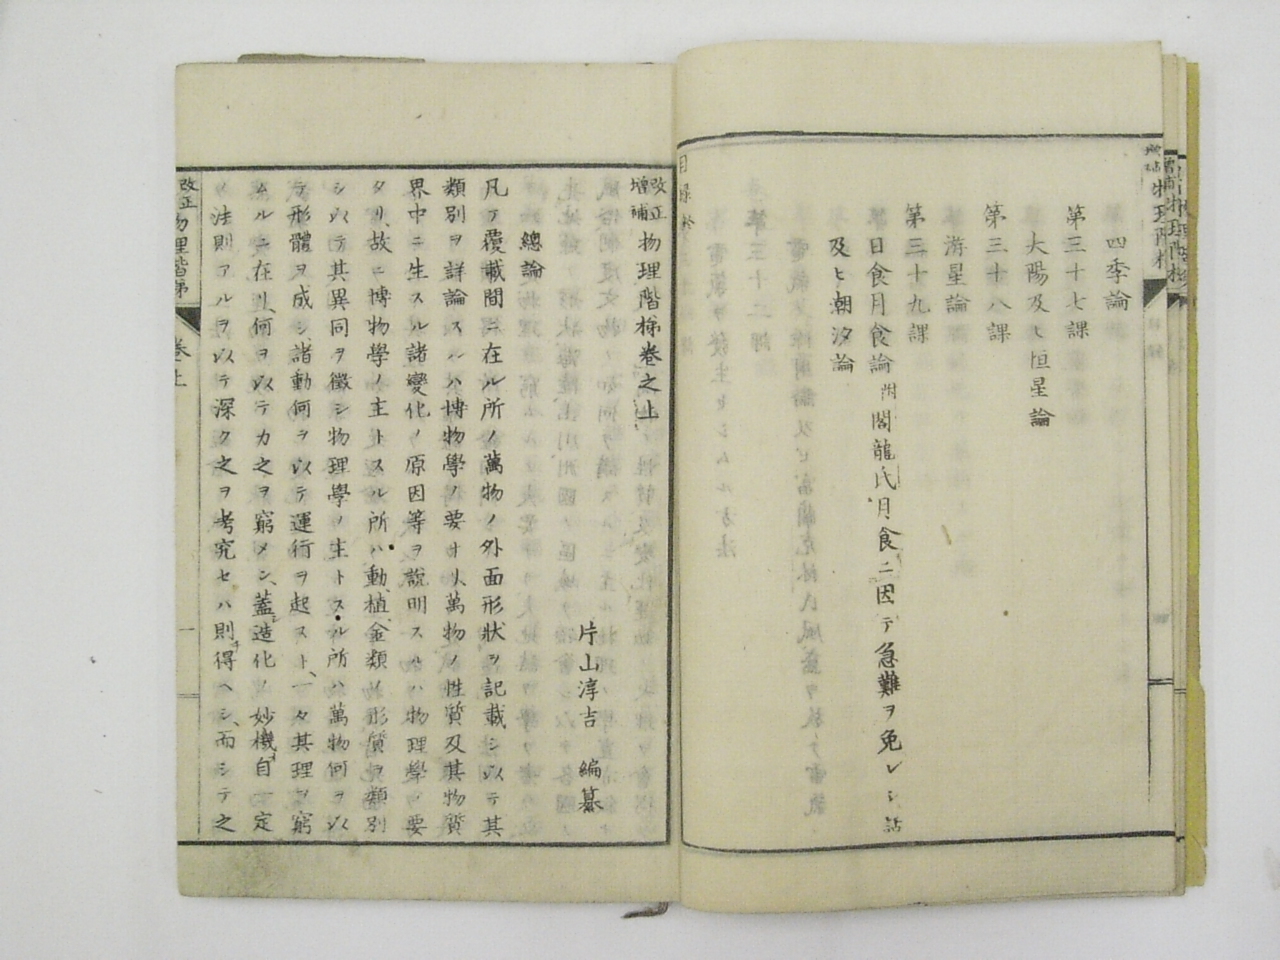 四季論
第三十七課
大陽及ヒ恒星論
第三十八課
游星論
第三十九課
日食月食論 附閣龍氏月食ニ因テ急難ヲ免レシ話
及ヒ潮汐論
目録終
改正増補物理階梯卷之上
片山淳吉 編纂
總論
凡ソ覆載間ニ在ル所ノ萬物ノ外面形狀ヲ記載シ以テ其
類別ヲ詳論スルハ博物學ノ要ナリ萬物ノ性質及其物質
界中ニ生スル諸變化ノ原因等ヲ說明スルハ物理學ノ要
タリ、故ニ博物學ノ主トスル所ハ動植金類ノ形質ヲ類別
シ以テ其異同ヲ徵シ物理學ノ主トスル所ハ萬物何ヲ以
テ形體ヲ成シ、諸動何ヲ以テ運行ヲ起スト、一々其理ヲ窮
ムルニ在リ、何ヲ以テカ之ヲ窮メン、蓋造化ノ妙機自一定
ノ法則アルヲ以テ深ク之ヲ考究セハ則得ヘシ、而シテ之
改正物理階梯 卷上 一